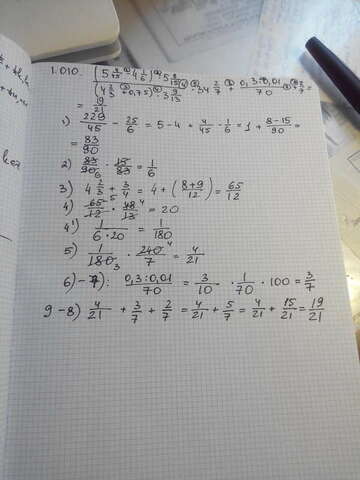 1.010. (5 4/45 - 4 1/6) : 5 8/15 / (4 2/3 + 0,75) · 3 9/13 · 34 2/7 + 0,3:0,01 / 70 + 2/7 =
= 19/21
1) 229/45 - 25/6 = 5 - 4 + 4/45 - 1/6 = 1 + 8-15/90 =
= 83/90
2) 83/90 6 · 15/83 = 1/6
3) 4 2/3 + 3/4 = 4 + (8+9/12) = 65/12
4) 65/12 5 · 48/13 4 = 20
4') 1/6·20 = 1/180
5) 1/180 3 · 240/7 4 = 4/21
6)-7): 0,3:0,01/70 = 3/10 · 1/70 · 100 = 3/7
9-8) 4/21 + 3/7 + 2/7 = 4/21 + 5/7 = 4/21 + 15/21 = 19/21